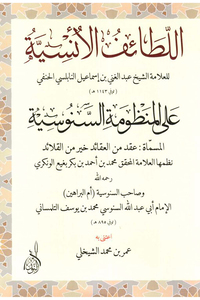 اللطائف الأنسية
للعلامة الشيخ عبد الغني بن إسماعيل النابلسي الحنفي
(توفي ١١٤٣ هـ)
على المنظومة السنوسية
المسماة : عقد من العقائد خير من القلائد
نظمها العلامة المحقق محمد بن أحمد بن بكر بغيع الونكري
رحمه الله
وصاحب السنوسية (أم البراهين)
الإمام أبي عبد الله السنوسي محمد بن يوسف التلمساني
(توفي ٨٩٥ هـ)
اعتنى به
عمر بن محمد الشيخلي